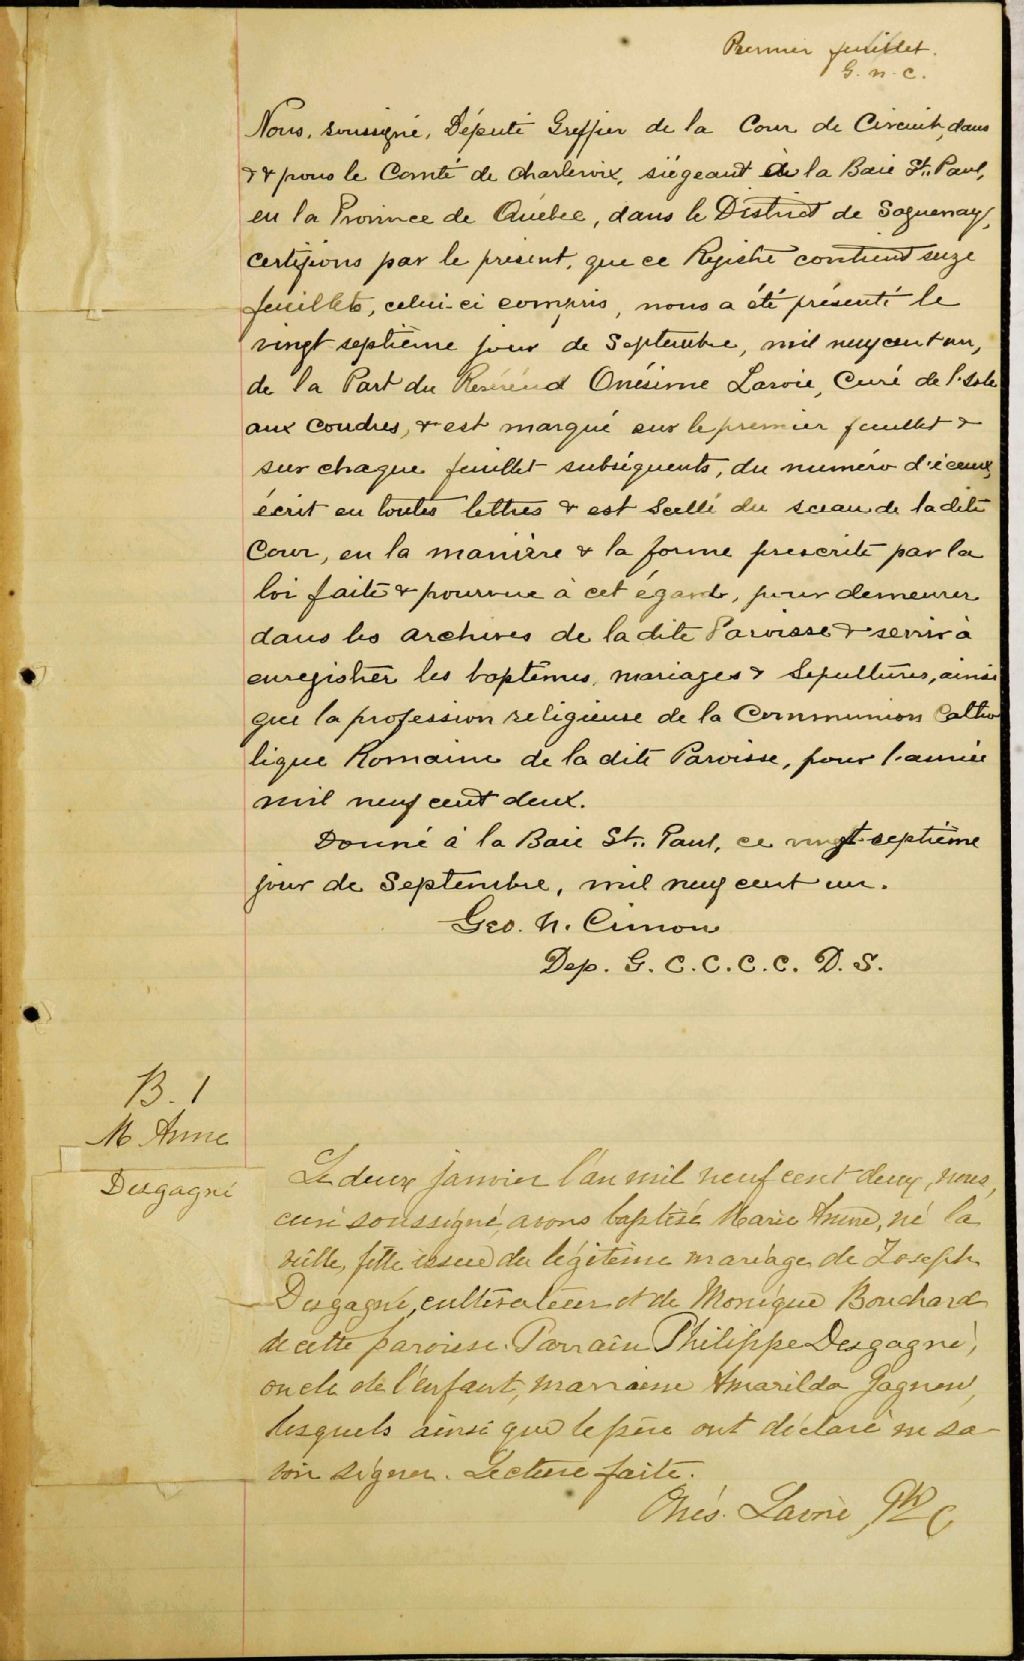 Premier feuillet.
G. N. C.
Nous, soussigné, Député Greffier de la Cour de Circuit, dans
& pour le Comté de Charlevoix, siégeant à la Baie St. Paul,
en la Province de Québec, dans le District de Saguenay,
certifions par le présent, que ce Registre contient seize
feuillets, celui-ci compris, nous a été présenté le
vingt septième jour de Septembre, mil neuf cent un,
de la Part du Révérend Onésime Lavoie, Curé de l'Isle
aux Coudres, & est marqué sur le premier feuillet &
sur chaque feuillet subséquents, du numéro d'iceux,
écrit en toutes lettres & est scellé du sceau de la dite
Cour, en la manière & la forme prescrite par la
loi faite & pourvue à cet égard, pour demeurer
dans les archives de la dite Paroisse & servir à
enregistrer les baptêmes, mariages & Sépultures, ainsi
que la profession religieuse de la Communion Catho
lique Romaine de la dite Paroisse, pour l'année
mil neuf cent deux.
Donné à la Baie St. Paul, ce vingt-septième
jour de Septembre, mil neuf cent un.
Geo. N. Cimon
Dep. G. C. C. C. C. D. S.
B. 1
M Anne
Desgagné
Le deux janvier l'an mil neuf cent deux, nous,
curé soussigné, avons baptisé Marie Anne, né la
veille, fille issue du légitime mariage de Joseph
Desgagné, cultivateur et de Monique Bouchard
de cette paroisse. Parrain Philippe Desgagné,
oncle de l'enfant, marraine Amarilda Gagnon,
lesquels ainsi que le père ont déclaré ne sa-
voir signer. Lecture faite.
Onés. Lavoie Ptre C